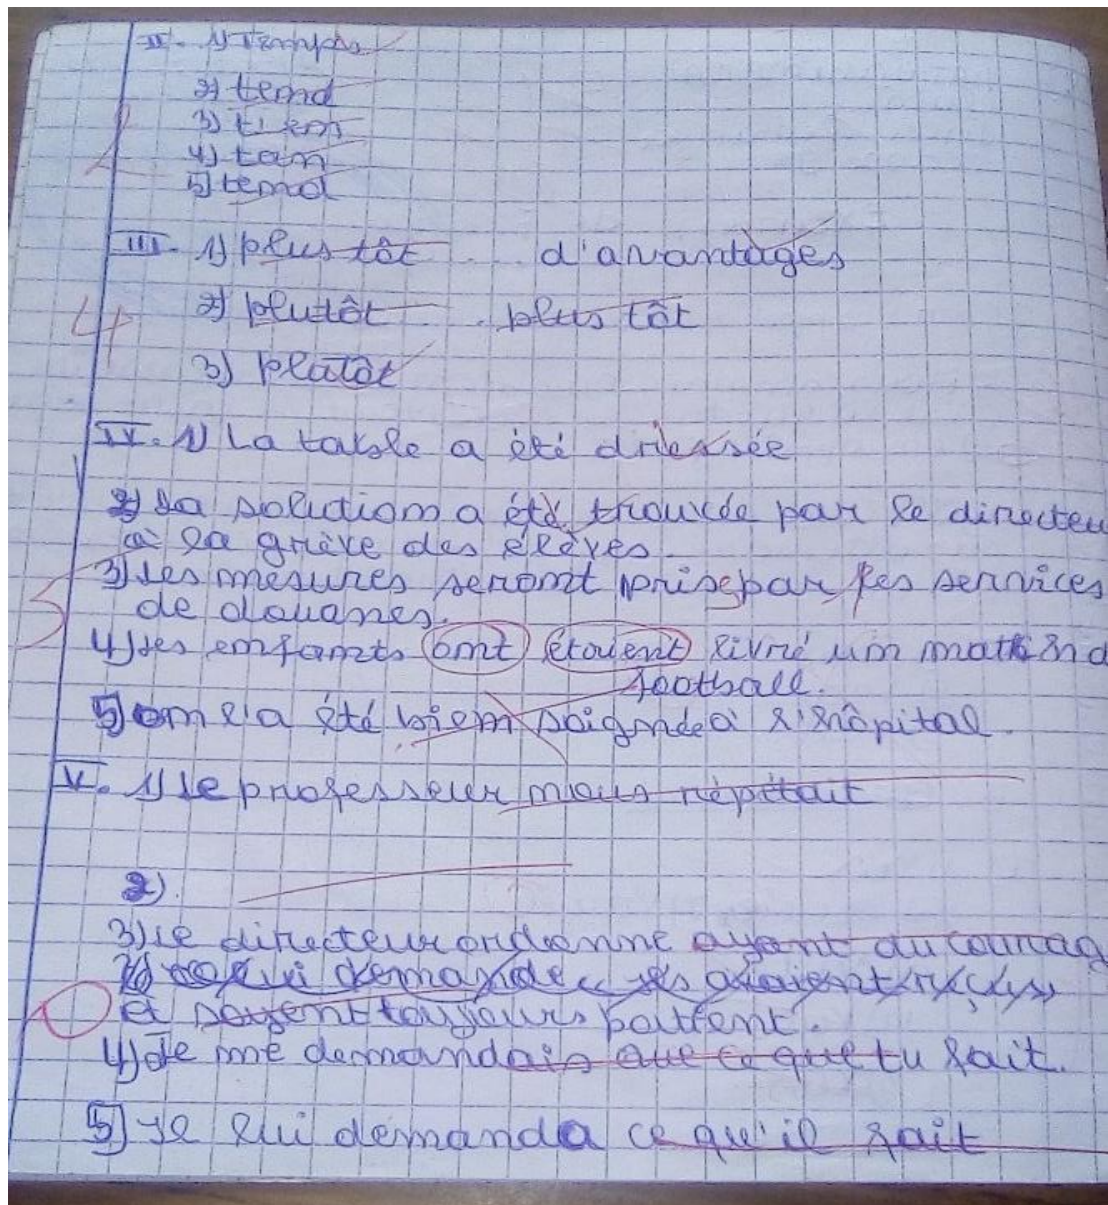 II. 1) Temps
2) tend
3) tient
4) tan
5) tend
III. 1) plus tôt d'avantages
2) plutôt plus tôt
4
3) plutôt
IV. 1) La table a été driessée
2) La solution a été trouvée par le directeu
à la grève des élèves.
3) Les mesures seront prise par les services
de douanes.
4) Les enfants ont étaient livré un match d
football.
5) on l'a été bien soignée à l'hôpital.
V. 1) Le professeur nous répétait
2).
3) Le directeur ordonne ayent du courag
lui demande
et soyent toujours patient.
4) Je me demandais que ce que tu fait.
5) Je lui demanda ce qu'il fait